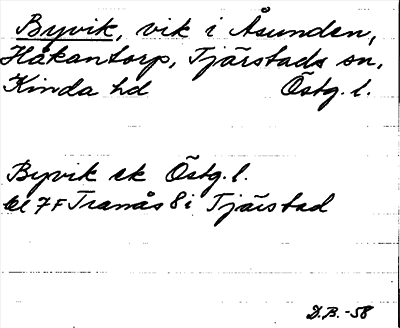 Byvik, vik i Åsunden,
Håkantorp, Tjärstads sn,
Kinda hd Östg. l.
Byvik ek Östg. l.
bl 7F Tranås 8i Tjärstad
D.B. -58